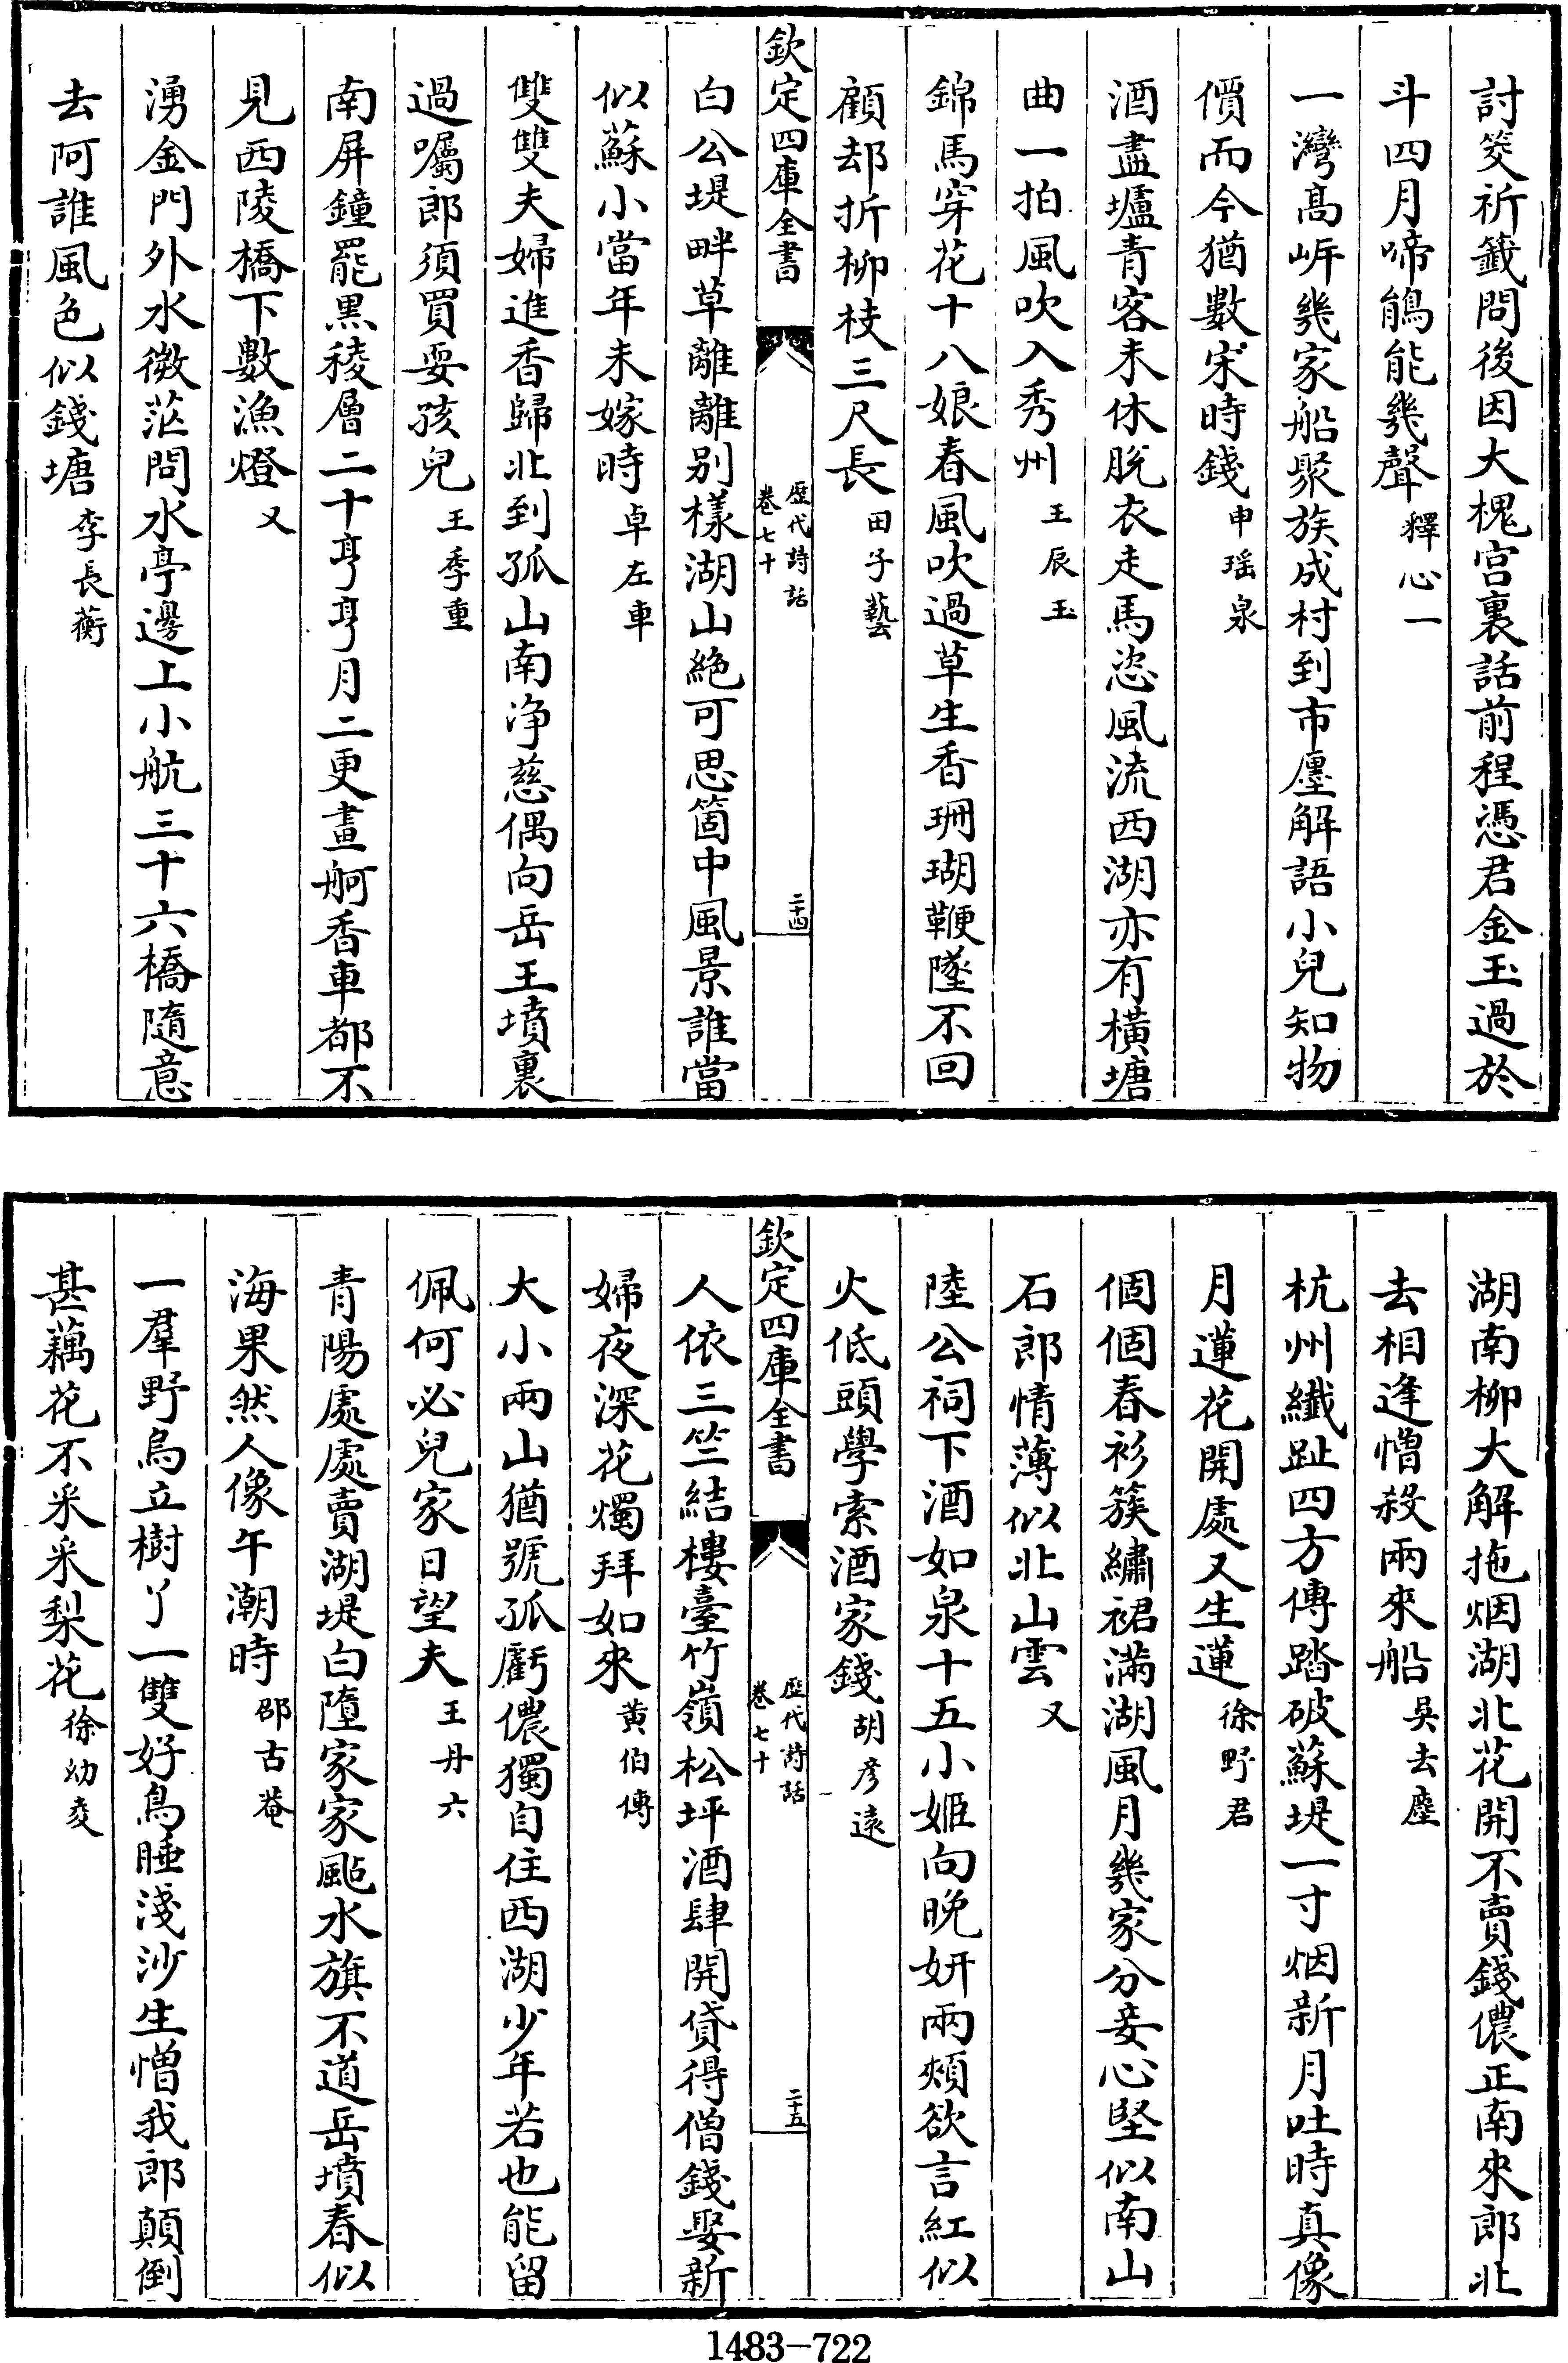 討筊祈籖問後因大槐宫裏話前程憑君金玉過於
斗四月啼鵑能幾聲釋心一
一灣髙㟁幾家船聚族成村到市廛解語小兒知物
價而今猶數宋時錢申瑶泉
酒盡壚青客未休脱衣走馬恣風流西湖亦有橫塘
曲一拍風吹入秀州王辰玉
錦馬穿花十八娘春風吹過草生香珊瑚鞭墜不回
顧却折柳枝三尺長田子藝
欽定四庫全書
歴代詩話
卷七十
二十四
白公堤畔草離離别樣湖山絶可思箇中風景誰當
似蘇小當年未嫁時卓左車
雙雙夫婦進香歸北到孤山南净慈偶向岳王墳裏
過囑郎須買耍孩兒王季重
南屏鐘罷黒稜層二十亭亭月二更畫舸香車都不
見西陵橋下數漁燈又
湧金門外水微茫問水亭邊上小航三十六橋隨意
去阿誰風色似錢塘李長蘅
湖南柳大解拖烟湖北花開不賣錢儂正南來郎北
去相逢憎殺兩來船吳去塵
杭州纖趾四方傳踏破蘇堤一寸烟新月吐時真像
月蓮花開處又生蓮徐野君
個個春衫簇繡裙滿湖風月幾家分妾心堅似南山
石郎情薄似北山雲又
陸公祠下酒如泉十五小姬向晚妍兩頰欲言紅似
火低頭學索酒家錢胡彦遠
欽定四庫全書
歴代詩話
卷七十
二十五
人依三竺結樓臺竹嶺松坪酒肆開貸得僧錢娶新
婦夜深花燭拜如來黄伯傳
大小兩山猶號孤虧儂獨自住西湖少年若也能留
佩何必兒家日望夫王丹六
青陽處處賣湖堤白墮家家颭水旗不道岳墳春似
海果然人像午潮時邵古菴
一羣野烏立樹丫一雙好鳥睡淺沙生憎我郎顛倒
甚藕花不采采梨花徐幼夌
1483-722